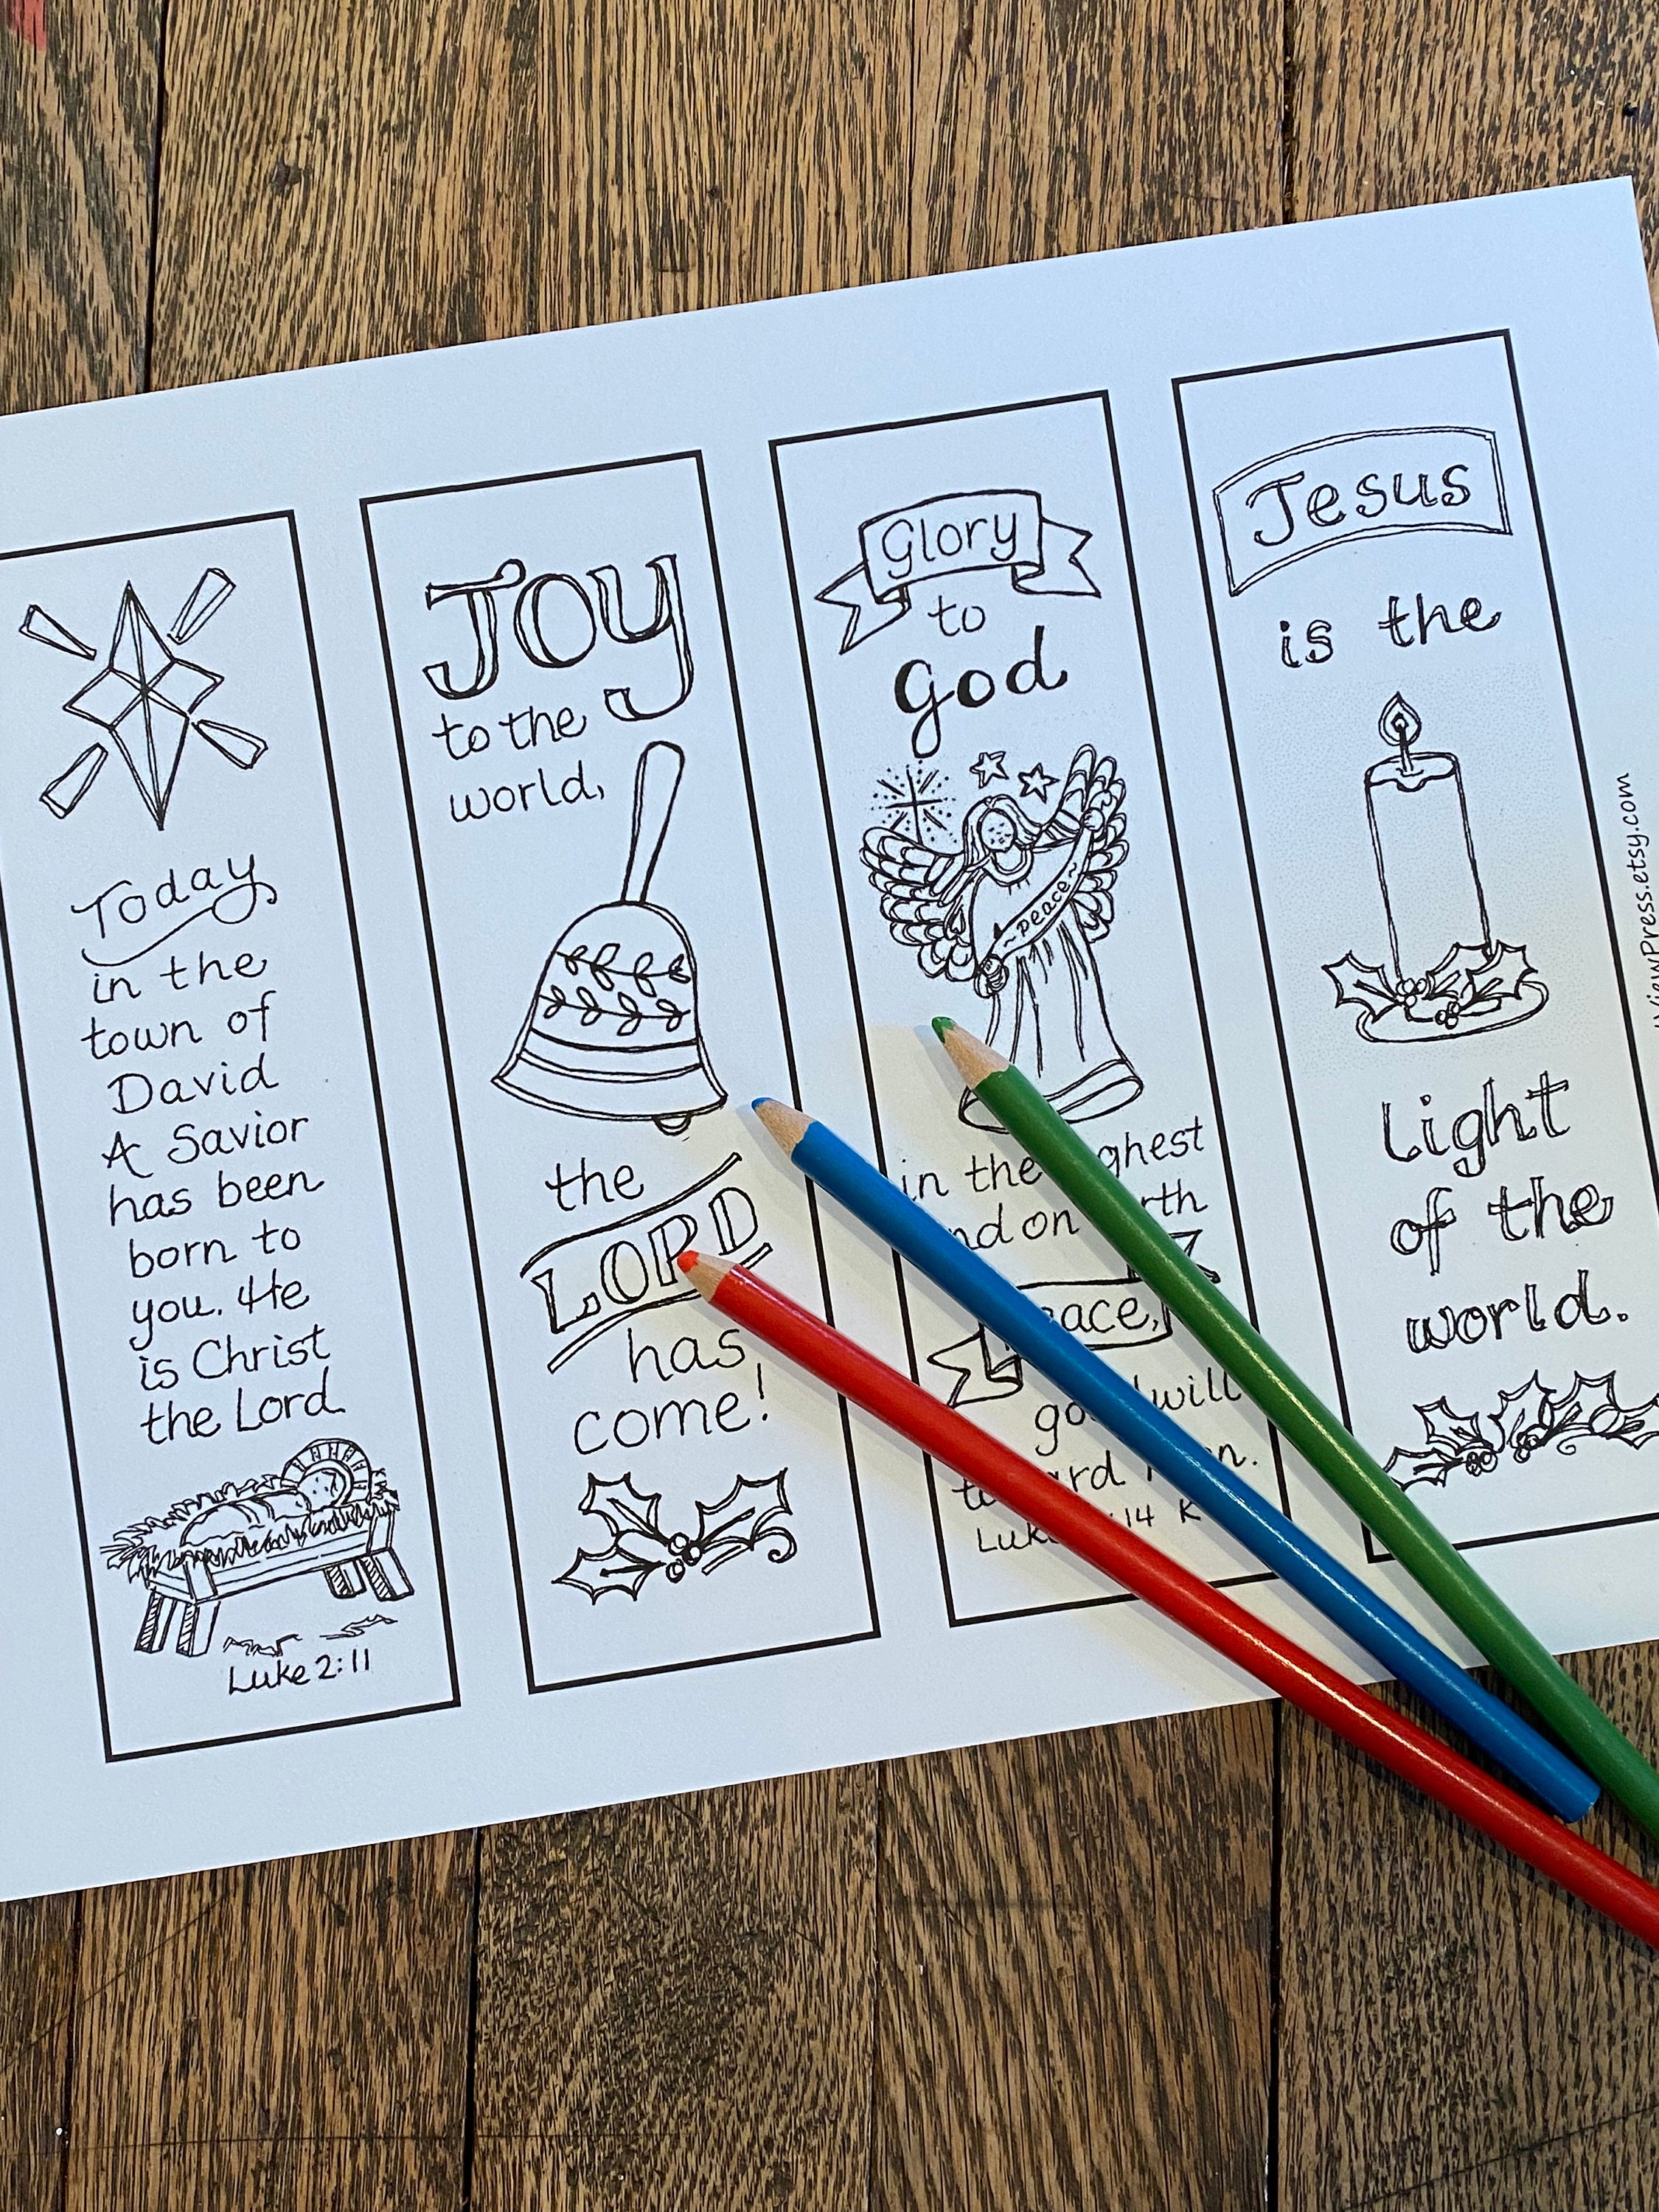 Today
in the
town of
David
A Savior
has been
born to
you. He
is Christ
the Lord
Luke 2:11
Joy
to the
world,
the
LORD
has
come!
Glory
to
God
~peace~
in the
on
will
14
Jesus
is the
Light
of the
world.
ViewPress.etsy.com